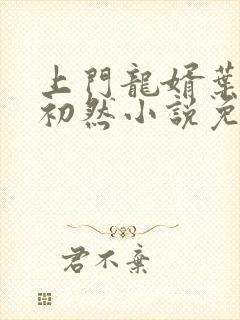 上門龍婿葉
初然小説免
君不棄